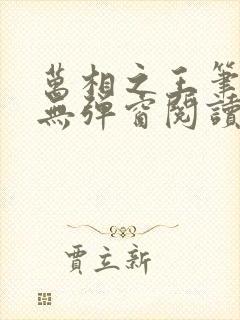 萬相之王筆
無彈窗閱讀
賈立新